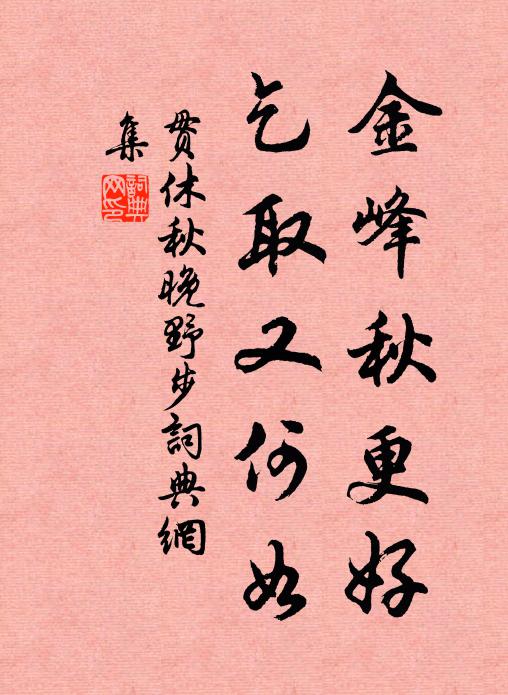 金峰秋更好
乞取又何如
貫休秋晚野步詞典網
集
詞典
网印